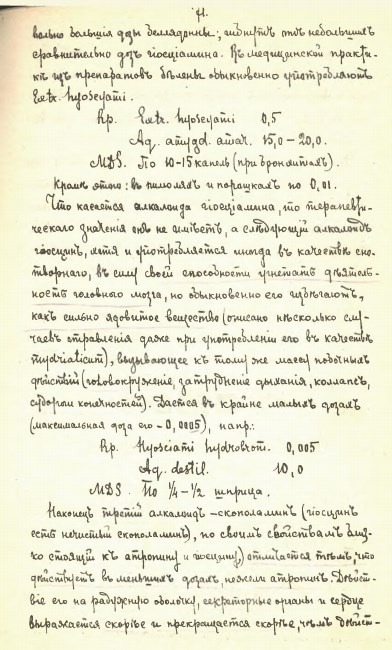 71.
вольно большія дозы белладонны; гибнутъ отъ небольшихъ
сравнительно дозъ гіосціамина. Въ медицинской практи-
кѣ изъ препаратовъ бѣлены обыкновенно употребляютъ
Extr. hyoscyami.
Rp. Extr. hyoscyami 0,5
Aq. amygd. amar. 15,0 – 20,0.
MDS. По 10-15 капель (при бронхитахъ).
Кромѣ этого: въ пилюляхъ и порошкахъ по 0,01.
Что касается алкалоида гіосціамина, то терапевти-
ческаго значенія онъ не имѣетъ, а слѣдующій алкалоидъ
гіосцинъ, хотя и употребляется иногда въ качествѣ сно-
творнаго, въ силу своей способности угнетать дѣятель-
ность головного мозга, но обыкновенно его избѣгаютъ,
какъ сильно ядовитое вещество (описано нѣсколько слу-
чаевъ отравленія даже при употребленіи его въ качествѣ
mydriaticum), вызывающее къ тому же массу побочныхъ
дѣйствій (головокруженіе, затрудненіе дыханія, коллапсъ,
судороги конечностей). Дается въ крайне малыхъ дозахъ
(максимальная доза его – 0,0005), напр.:
Rp. Hyosciami hydrobrom. 0,005
Aq. destil. 10,0
MDS. По ¼ – ½ шприца.
Наконецъ третій алкалоидъ – скополаминъ (гіосцинъ
есть нечистый скополаминъ), по своимъ свойствамъ близ-
ко стоящій къ атропину и гіосцину, отличается тѣмъ, что
дѣйствуетъ въ меньшихъ дозахъ, нежели атропинъ. Дѣйст-
віе его на радужную оболочку, секреторные органы и сердце
выражается скорѣе и прекращается скорѣе, чѣмъ дѣйст-